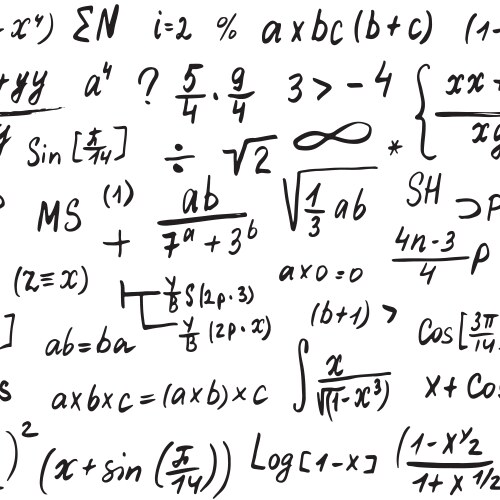 - x⁴) ΣN i=2 % a×bc (b+c) (1-
+yy/y a⁴ ? 5/4 · 9/4 3 > -4 { xx+/xy
Sin [π/14] ÷ √2 ∞ *
MS (1) + ab/(7ᵃ+3ᵇ) √(1/3 ab) SH ⊃P
(z≡x) a×0=0 (4n-3)/4 P
y/B S(2p·3)
y/B (2p·x) (b+1) > Cos[3π/14
] ab=ba
s a×b×c=(a×b)×c ∫ x/√(1-x³) x+Cos
)² (x+sin (π/14)) Log[1-x] (1-x^y2/1+x^1/2